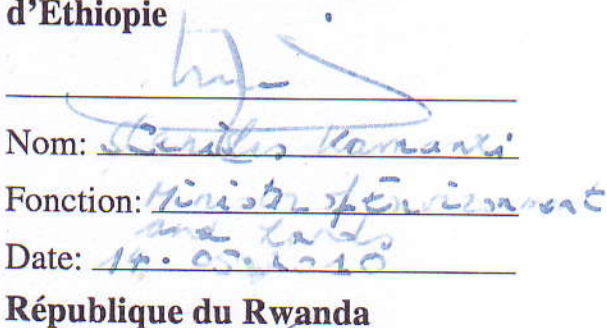 d'Ethiopie
Nom: Stanislas Kamanzi
Fonction: Minister of Environment
and Lands
Date: 14.05.2010
République du Rwanda